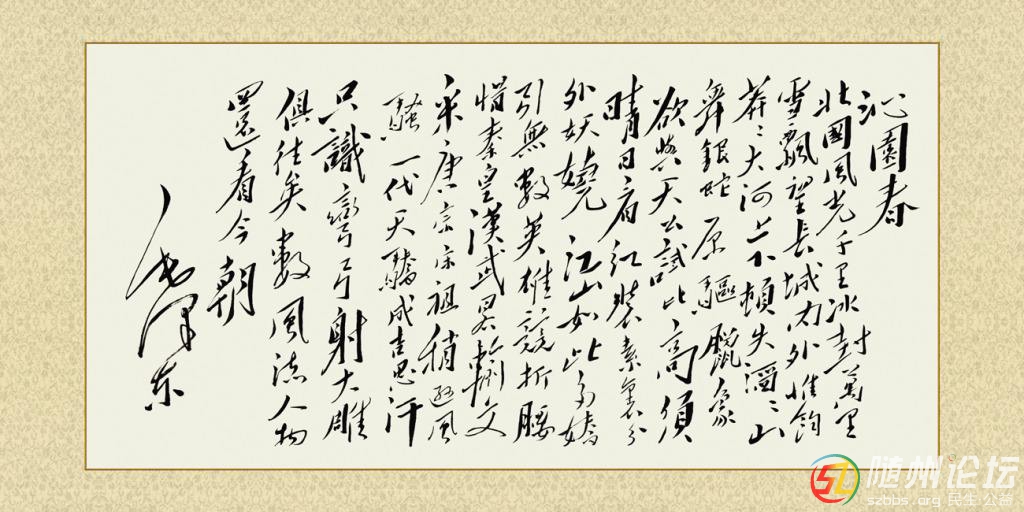 沁園春
北國風光千里冰封萬里
雪飄望長城内外惟餘
莽〻大河上下頓失滔〻山
舞銀蛇原驅臘象
欲與天公試比高須
晴日看红裝素裹分
外妖嬈江山如此多嬌
引無數英雄競折腰
惜秦皇漢武略輸文
采唐宗宋祖稍遜風
騷一代天驕成吉思汗
只識彎弓射大雕
俱往矣數風流人物
還看今朝
毛澤东
随州论坛
szbbs.org 民生·公益